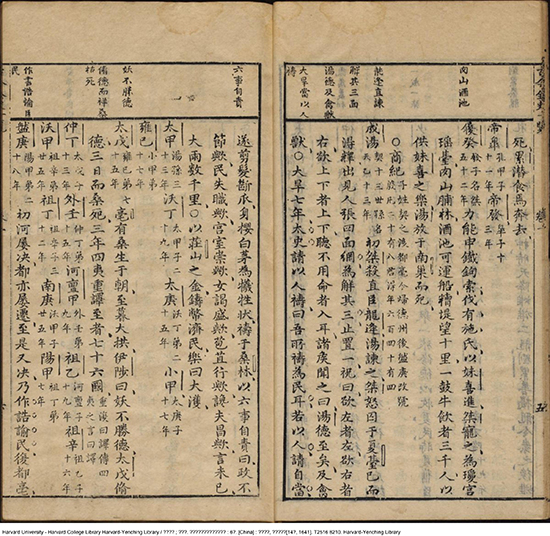 肉山酒池
龍逄直諫
解其三面
湯德及禽獸
大旱當以人禱
帝皋 孔甲子十一年 帝發
履癸 力能申鐵鉤索伐有施氏以妹喜進桀寵之為瓊宮
瑤臺肉山脯林酒池可運船糟堤望十里一鼓牛飲者三千人以
供妹喜之樂湯放于南巢而死
○商紀 子姓契之後都亳今歸德州後盤庚改號
二十八君 六百四十有四
成湯 初桀殺直臣龍逄湯諫之桀怒囚于夏臺已而
得釋出見人張四面網為解其三止置一祝曰欲左者左欲右者
右欲上下者上下聽不用命者入耳諸侯聞之曰湯德至矣及禽
獸○大旱七年太史請以人禱曰吾所禱為民耳若以人請自當
六事自責
妖不勝德
脩德而祥桑枯死
作書誥諭臣民
遂剪髮斷爪身纓白茅為犧牲狀禱于桑林以六事自責曰政不
節歟民失職歟宮室崇歟女謁盛歟苞苴行歟讒夫昌歟言未已
大雨數千里○以莊山之金鑄幣濟民樂曰大濩
太甲 湯孫三十三年 沃丁 太甲子二十九年 太庚 沃丁弟二十五年 小甲 太庚子十七年
雍己 小甲弟十三年
太戊 雍己弟七十五年 亳有桑生于朝至暮大拱伊陟曰妖不勝德太戊脩
德三日而桑死三年四夷重譯至者七十六國
仲丁 太戊子十三年 外壬 仲丁弟十五年 河亶甲 外壬弟九年 祖乙 河亶甲子十九年 祖辛 祖乙子十六年
沃甲 祖辛弟二十五年 祖丁 祖辛子三十二年 南庚 二十五年 陽甲 祖丁子七年
盤庚 陽甲弟二十八年 初河屢決都亦屢遷至是又決乃作誥諭民後都亳
Harvard University - Harvard College Library Harvard-Yenching Library / ???? ; ???. ????????????? : 67. [China] : ????, ?????[14?, 1641]. T2516 8210. Harvard-Yenching Library